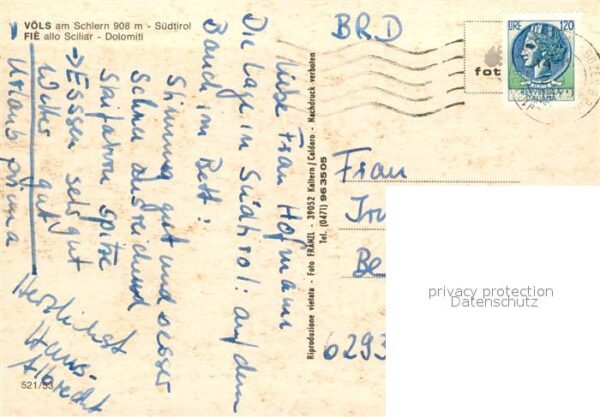 VÖLS am Schlern 908 m - Südtirol
FIÈ allo Sciliar - Dolomiti
BRD
LIRE 120
fot
Liebe Frau Hofmann
Die Lage in Südtirol: auf dem
Bauch im Bett!
Stimmung gut und besser
Schnee ausreichend
Skifahren spitze
→ Essen sehr gut
Wetter gut
Urlaub prima
Herzlichst
Hans-
Albrecht
521/53
Riproduzione vietata - Foto FRANZL - 39052 Kaltern/Caldaro - Nachdruck verboten
Tel. (0471) 963505
Frau
Be
6293
privacy protection
Datenschutz